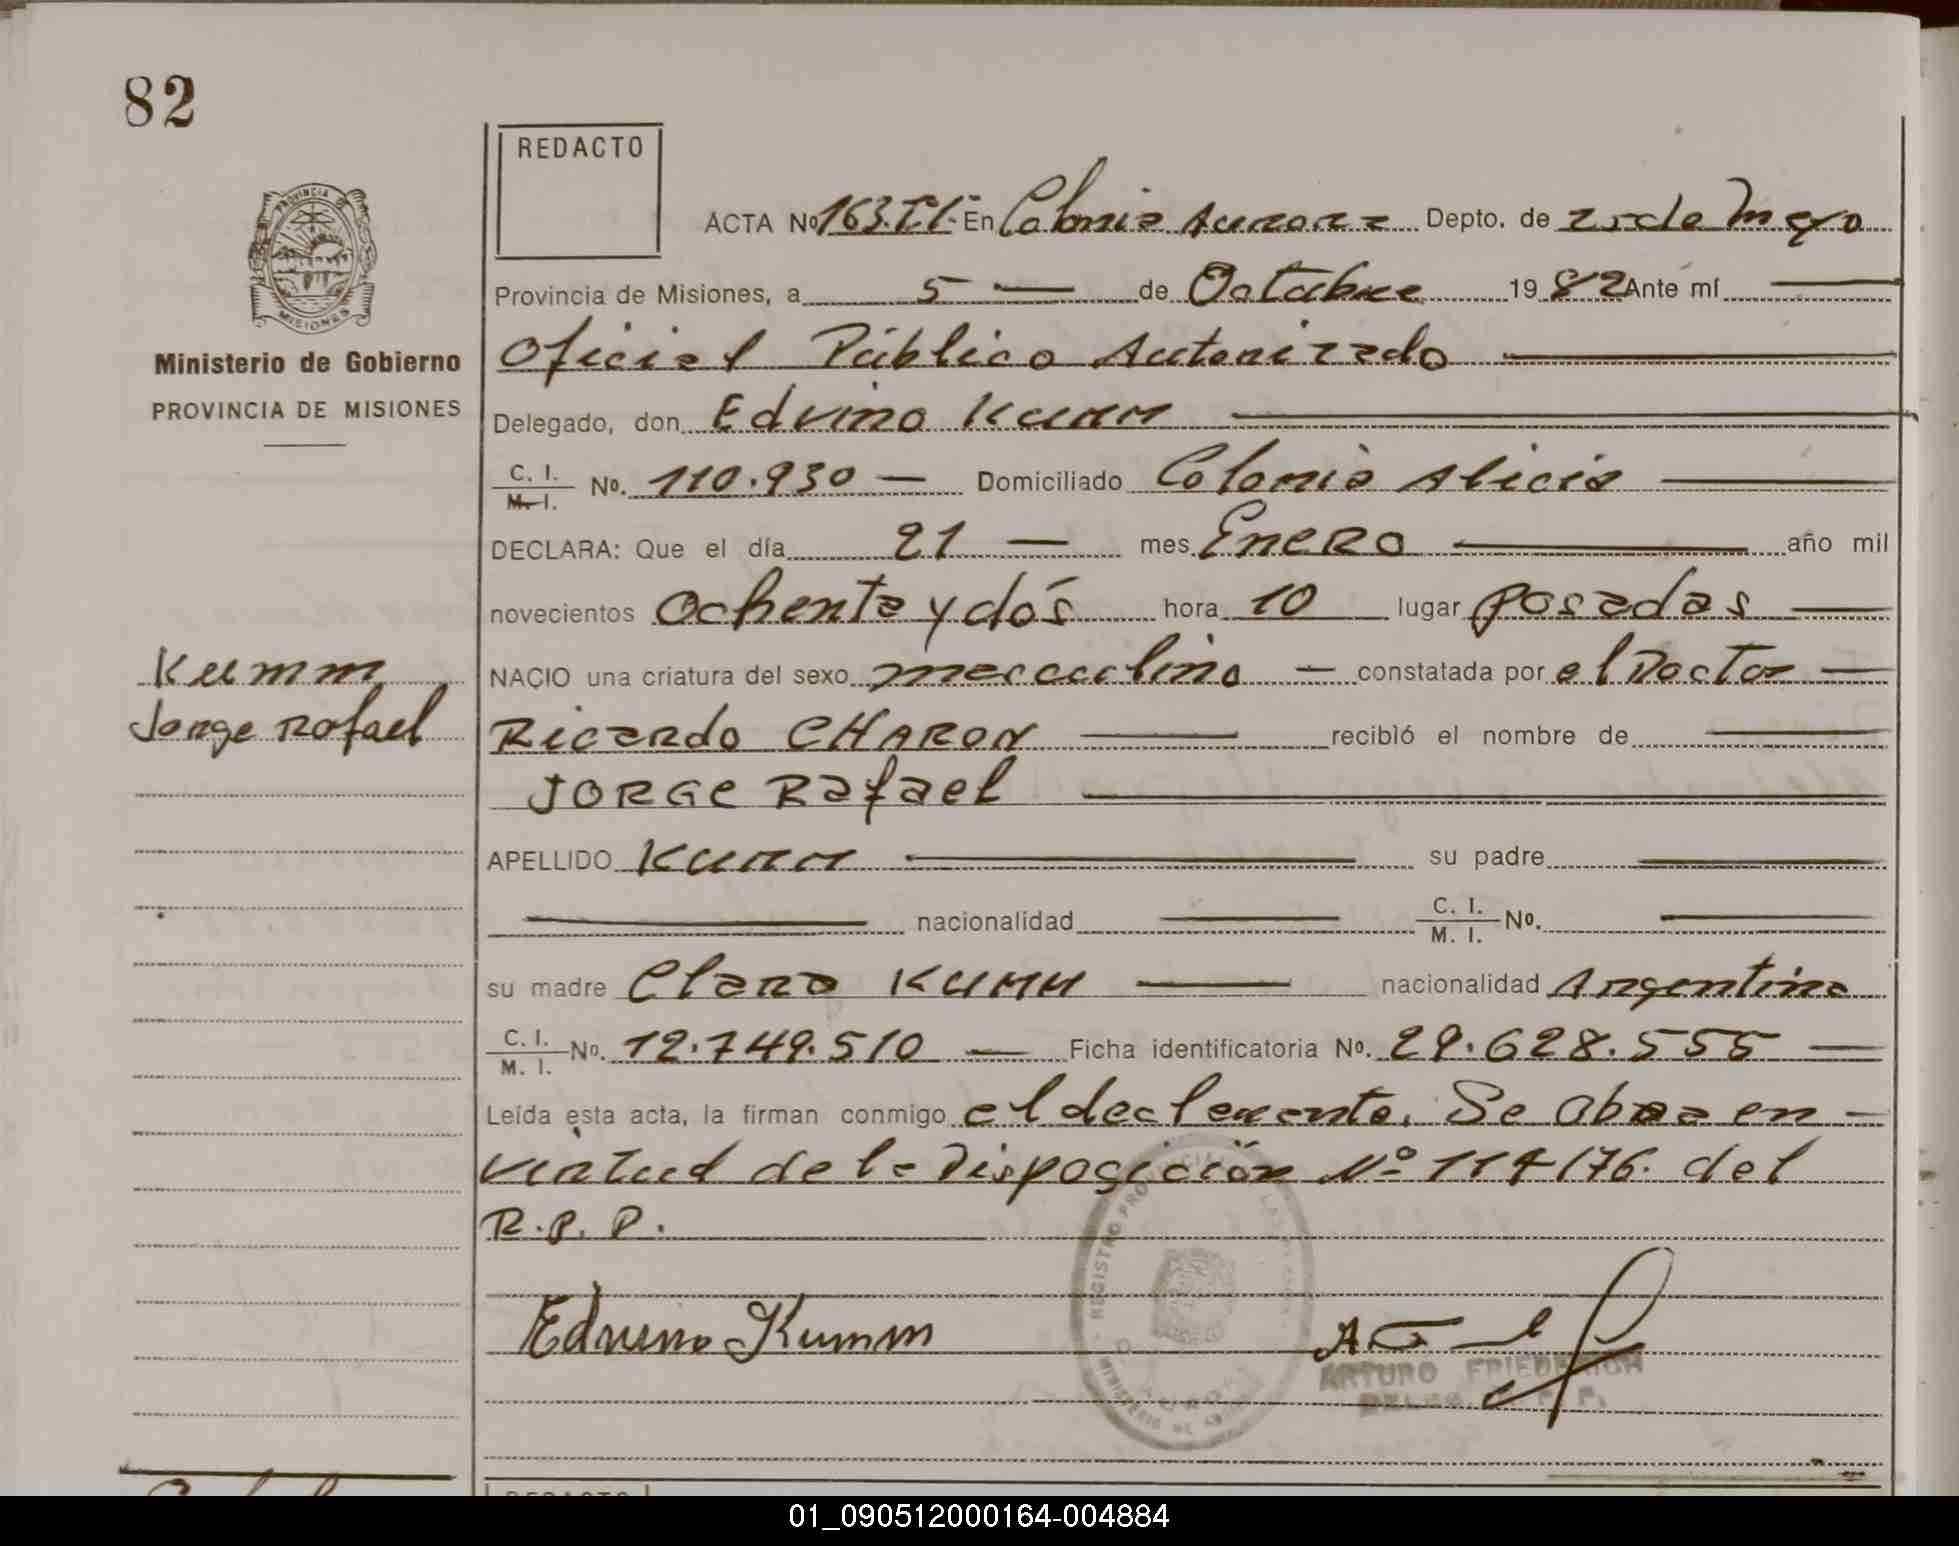 82
REDACTO
ACTA Nº 163.T.I.- En Colonia Aurora Depto. de 25 de Mayo
PROVINCIA DE
MISIONES
Provincia de Misiones, a 5 — de Octubre 1982 Ante mí —
Ministerio de Gobierno
Oficial Público Autorizado —
PROVINCIA DE MISIONES
Delegado, don Edvino KUMM —
C. I. / M. I. No. 110.930 — Domiciliado Colonia Alicia —
DECLARA: Que el día 21 — mes Enero — año mil
novecientos ochenta y dós hora 10 lugar posadas —
Kumm
NACIO una criatura del sexo masculino — constatada por el Doctor —
Jorge Rafael
Ricardo CHARON — recibió el nombre de —
JORGE Rafael —
APELLIDO KUMM — su padre —
— nacionalidad — C. I. / M. I. No. —
su madre Clara KUMM — nacionalidad Argentina
C. I. / M. I. No. 12.749.510 — Ficha identificatoria No. 29.628.555 —
Leída esta acta, la firman conmigo el declarante. Se obra en —
virtud de la Disposición Nº 114/76. del
R.P.P.
REGISTRO PROVINCIAL DE LAS PERSONAS
Edvino Kumm
ARTURO FRIEDRICH
DELEG. R. P. P.
REDACTO
01_090512000164-004884